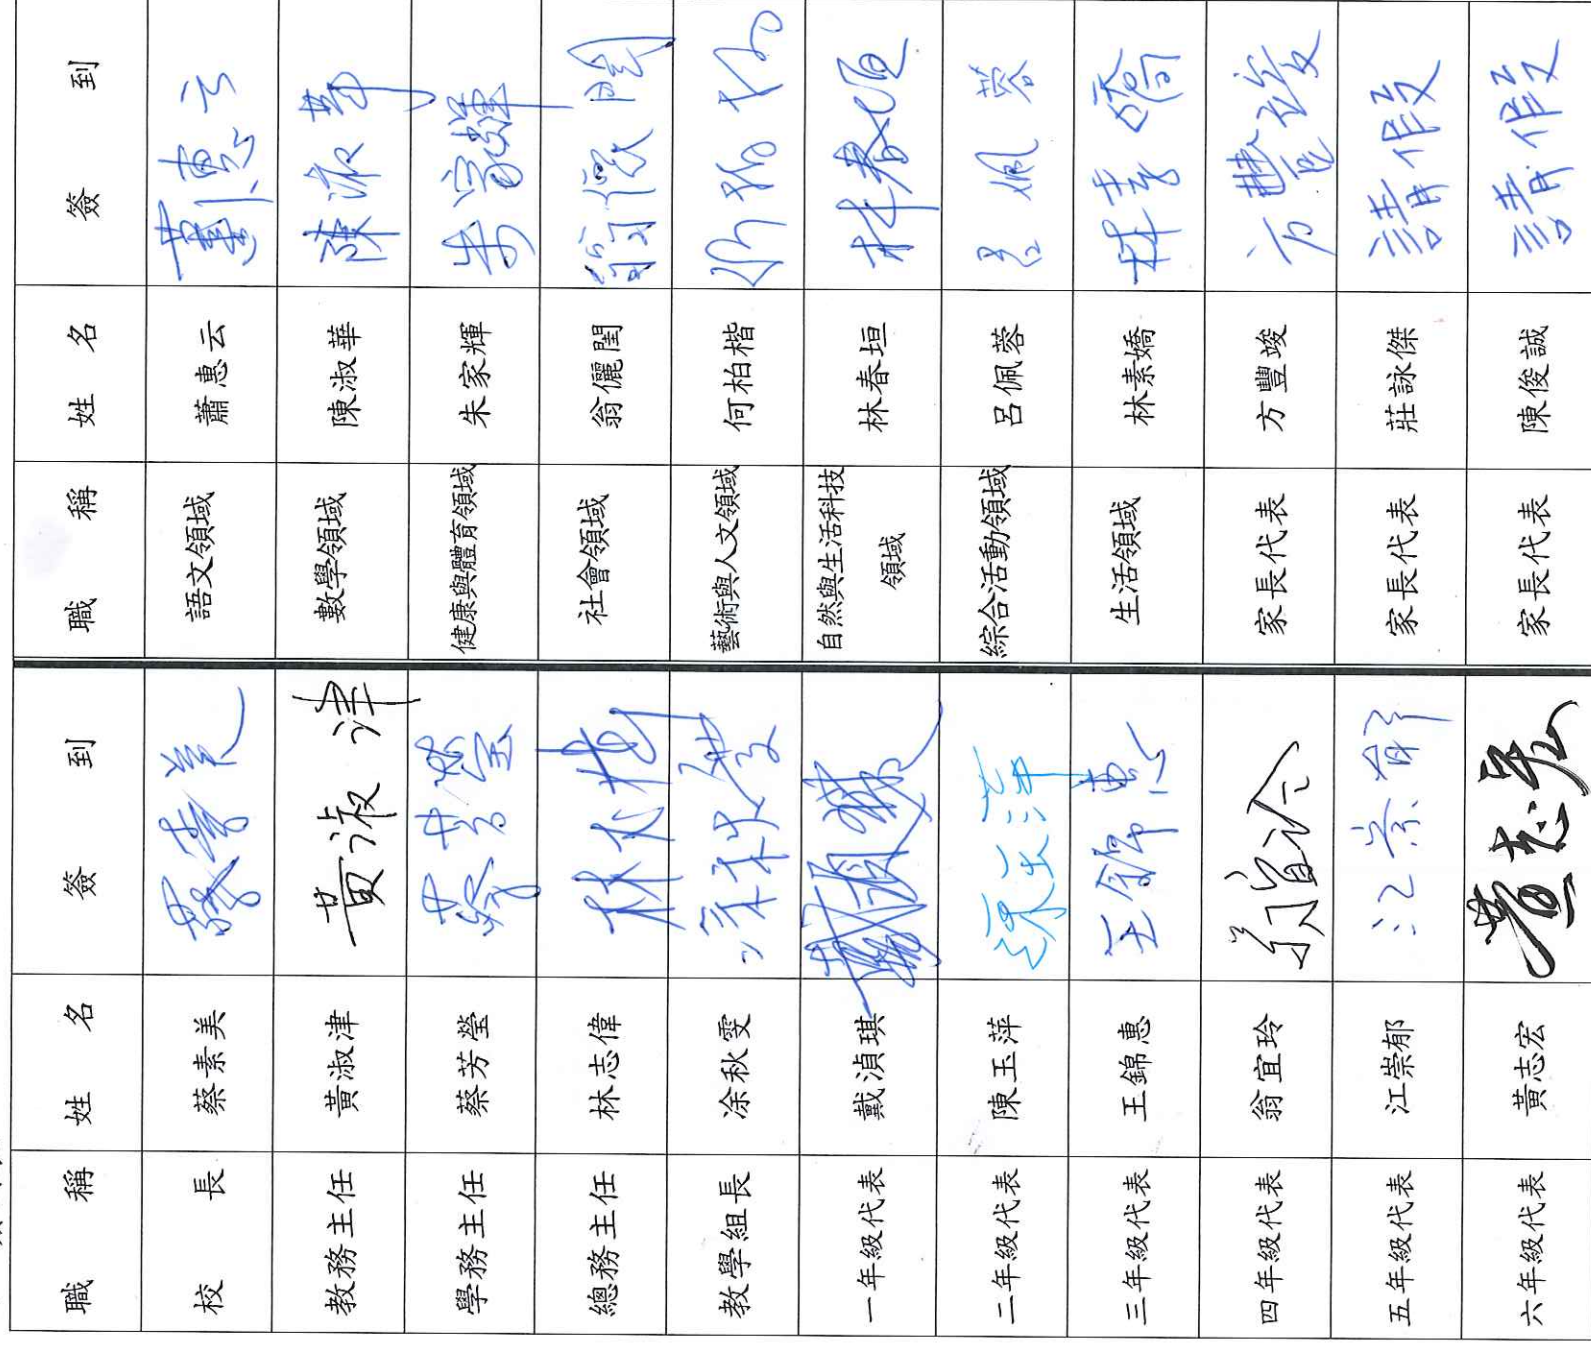 職稱 姓名 簽到 職稱 姓名 簽到
校長 蔡素美 蔡素美 語文領域 蕭惠云 蕭惠云
教務主任 黃淑津 黃淑津 數學領域 陳淑華 陳淑華
學務主任 蔡芳瑩 蔡芳瑩 健康與體育領域 朱家輝 朱家輝
總務主任 林志偉 社會領域 翁儷閨 翁儷閨
教學組長 凃秋雯 藝術與人文領域 何柏楷
一年級代表 戴湞琪 自然與生活科技領域 林春垣 林春垣
二年級代表 陳玉萍 陳玉萍 綜合活動領域 呂佩蓉 呂佩蓉
三年級代表 王錦惠 王錦惠 生活領域 林素嬌 林素嬌
四年級代表 翁宜玲 家長代表 方豐竣 方豐竣
五年級代表 江崇郁 江崇郁 家長代表 莊詠傑 請假
六年級代表 黃志宏 黃志宏 家長代表 陳俊誠 請假